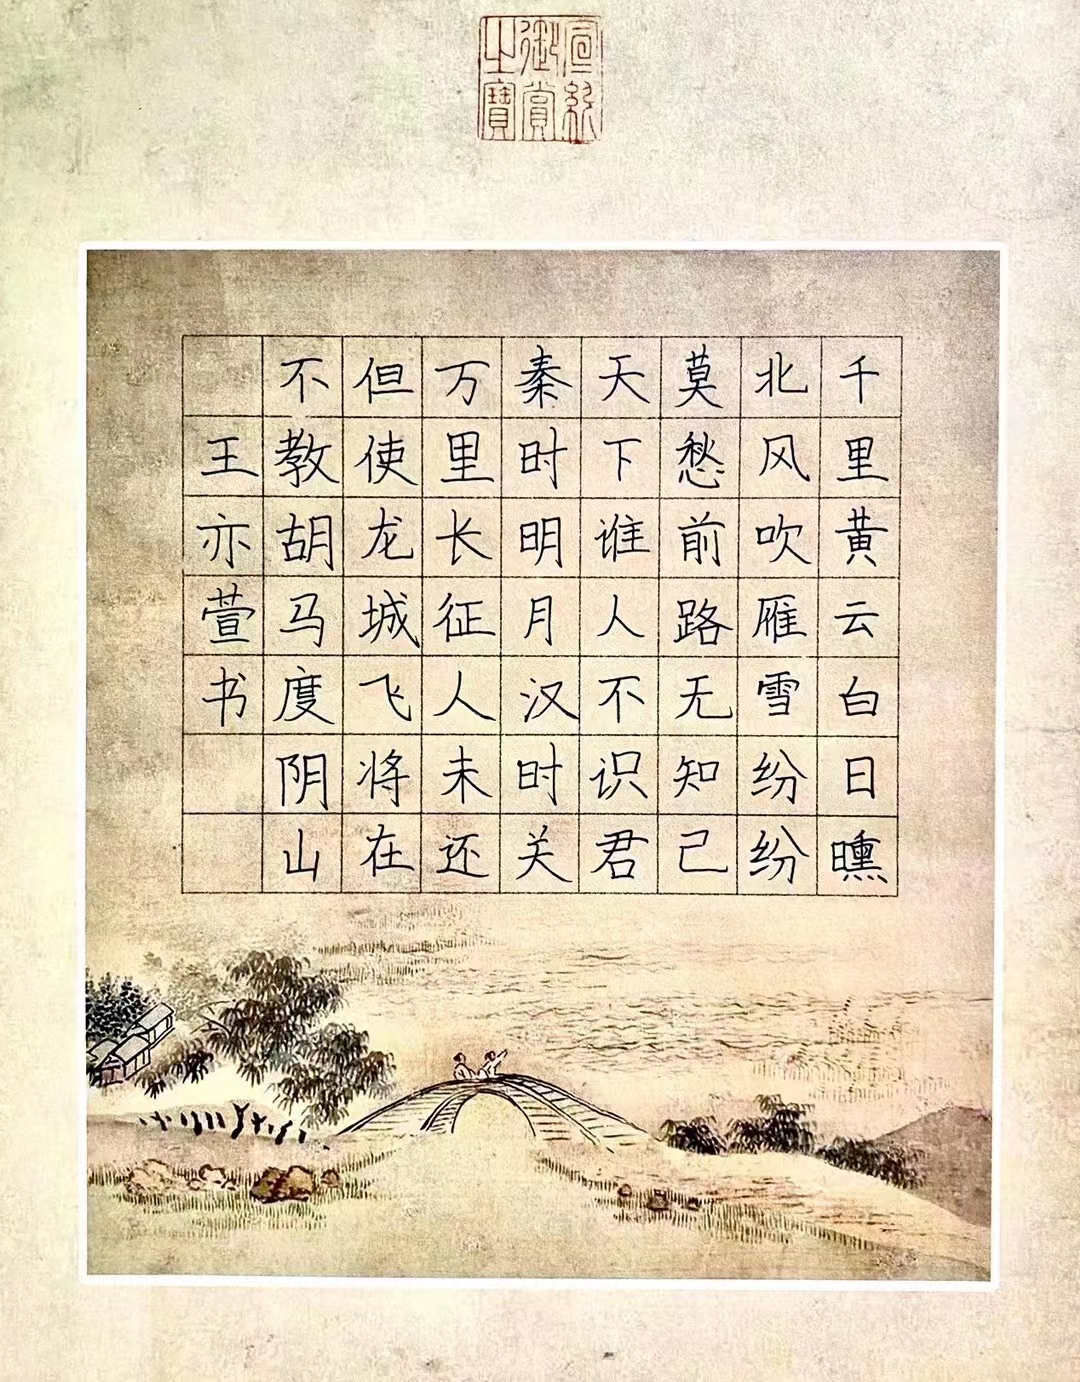 宣
御賞
之寶
千里黄云白日曛
北风吹雁雪纷纷
莫愁前路无知己
天下谁人不识君
秦时明月汉时关
万里长征人未还
但使龙城飞将在
不教胡马度阴山
王亦萱书